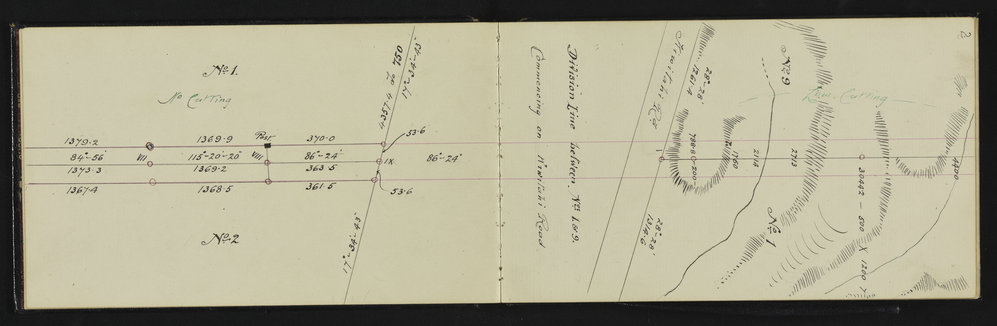 No 1.
No Cutting
1379·2
1369·9
Post
370·0
53·6
84°-56'
VII
115°-20'-20"
VIII
86°-24'
IX
86°-24'
1373·3
1369·2
363·5
1367·4
1368·5
361·5
53·6
No 2
4357·4 to 750
17°-34'-43"
17°-34'-43"
2
Division Line between Nos 1 & 9.
Commencing on Kiwitahi Road
Kiwitahi Rd
28°-28'
1261·4
28°-28'
1314·6
I
1760
2118
2713
No 9
Cutting
No 1
30442 – 500 X 1260
4400